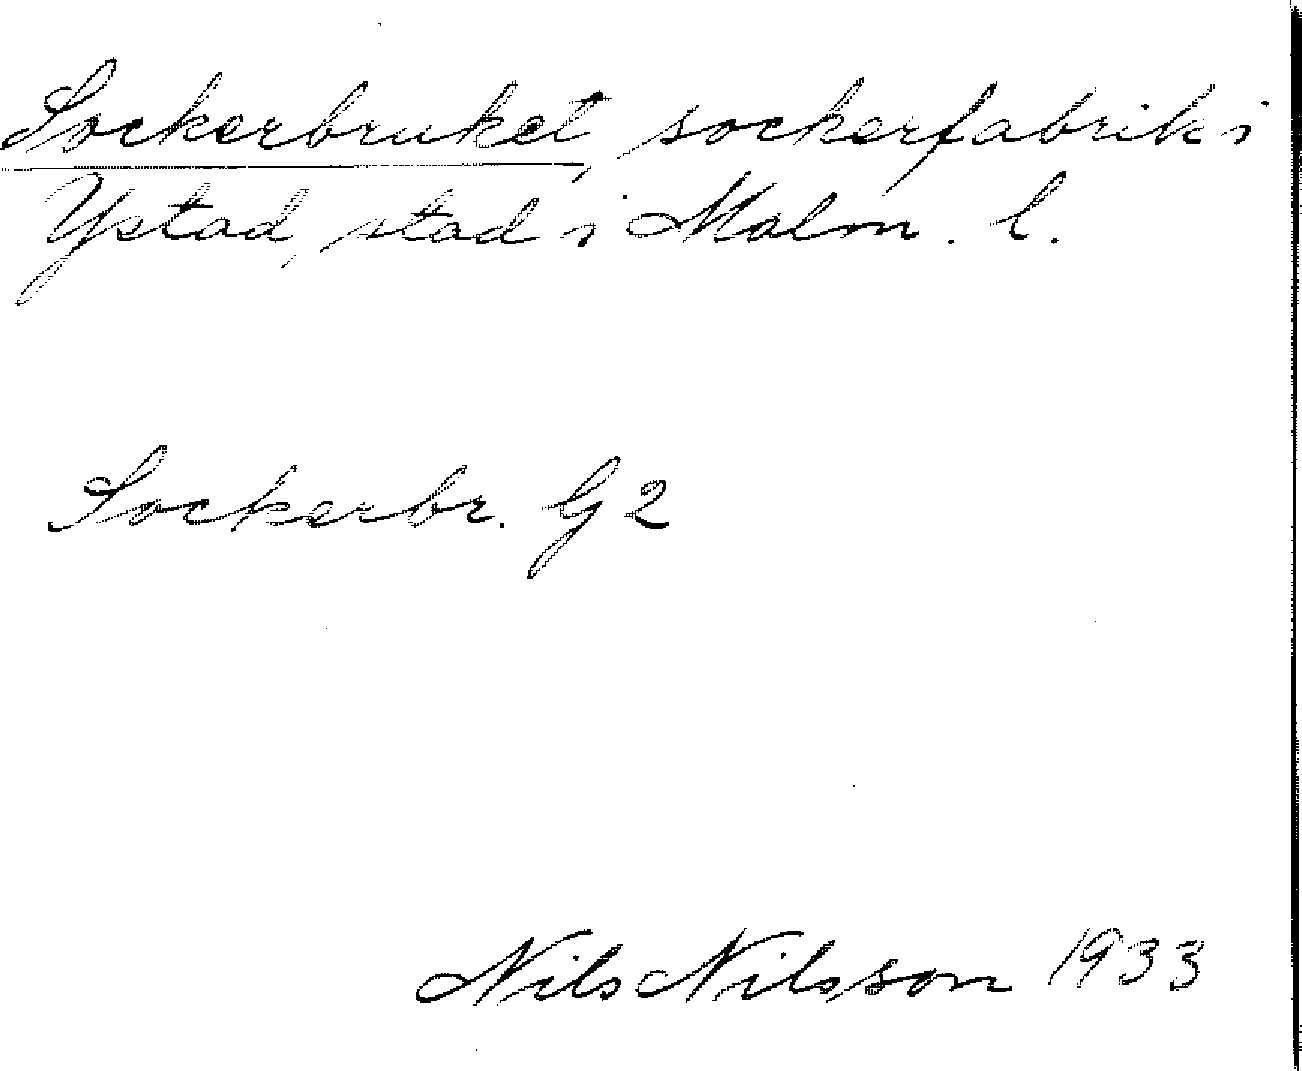 Sockerbruket, sockerfabrik i
Ystad, stad i Malm. l.
Sockerbr. G 2
Nils Nilsson 1933